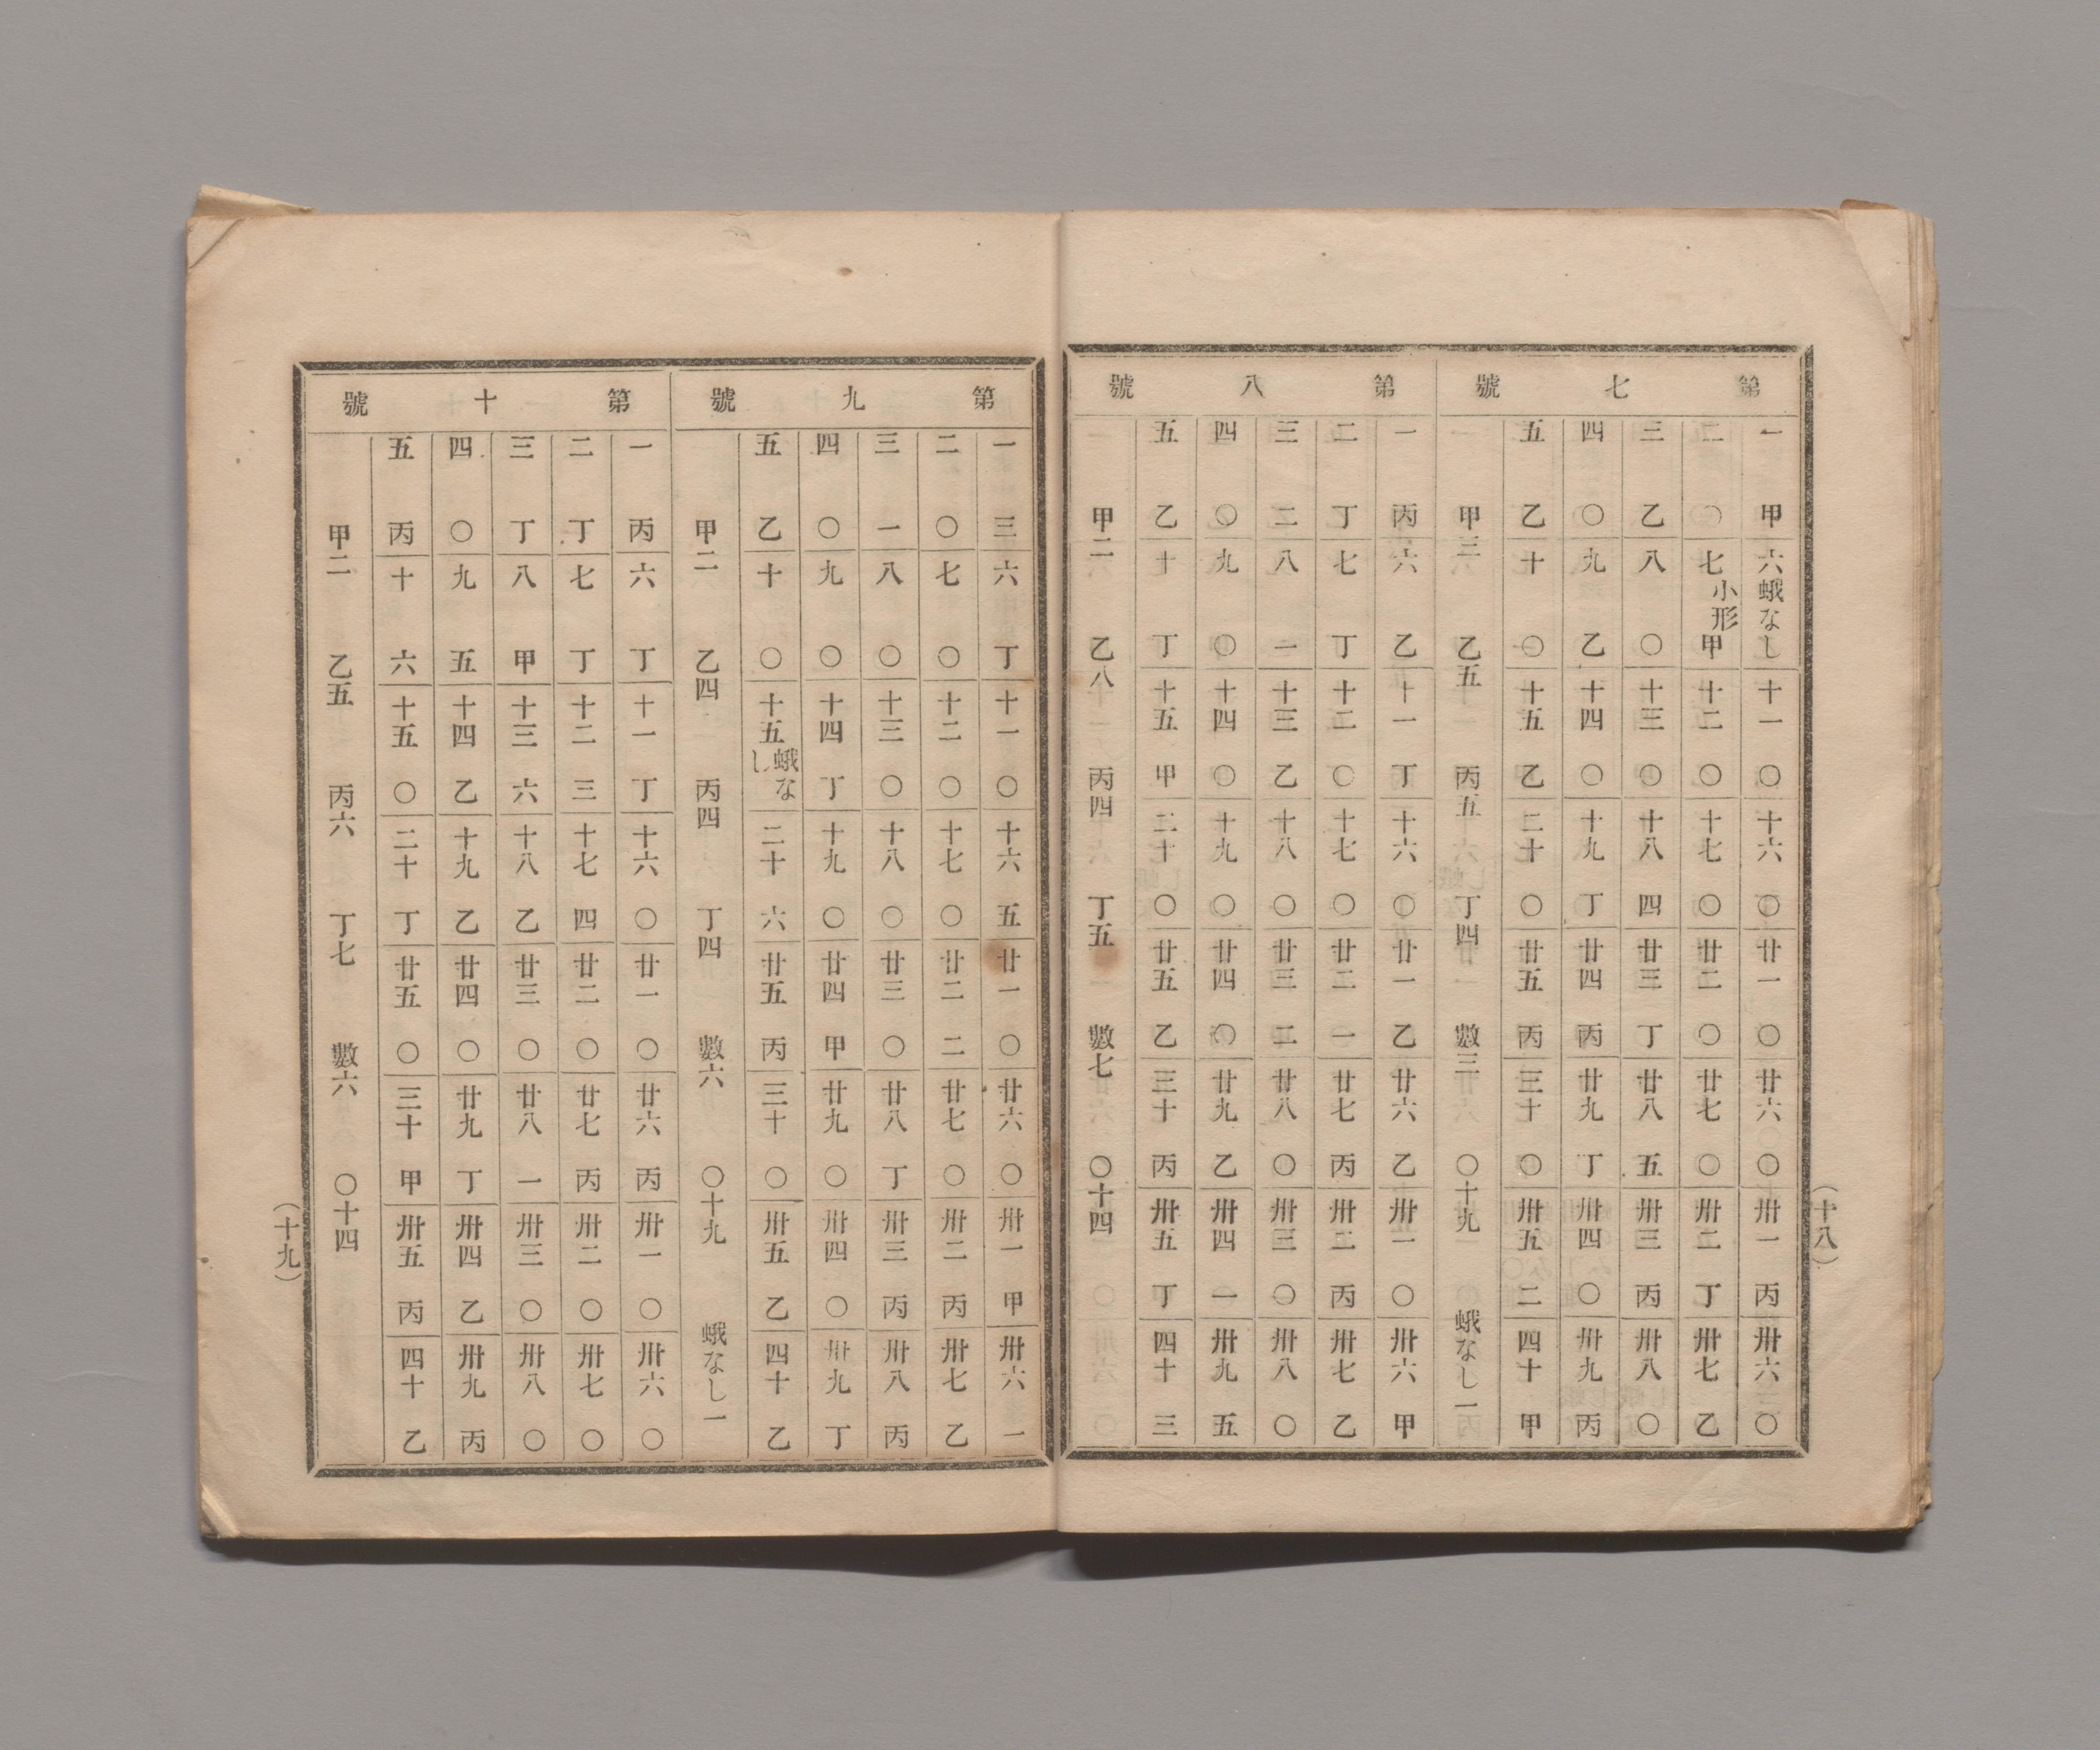 （十八）
第七號
一 甲 六 蛾なし 十一 〇 十六 〇 廿一 〇 廿六 〇 卅一 丙 卅六 〇
二 〇 七 小形 甲 十二 〇 十七 〇 廿二 〇 廿七 〇 卅二 丁 卅七 乙
三 乙 八 〇 十三 〇 十八 四 廿三 丁 廿八 五 卅三 丙 卅八 〇
四 〇 九 乙 十四 〇 十九 丁 廿四 丙 廿九 丁 卅四 〇 卅九 丙
五 乙 十 〇 十五 乙 二十 〇 廿五 丙 三十 〇 卅五 二 四十 甲
甲三 乙五 丙五 丁四 數三 〇十九 蛾なし一
第八號
一 丙 六 乙 十一 丁 十六 〇 廿一 乙 廿六 乙 卅一 〇 卅六 甲
二 丁 七 丁 十二 〇 十七 〇 廿二 一 廿七 丙 卅二 丙 卅七 乙
三 二 八 一 十三 乙 十八 〇 廿三 二 廿八 〇 卅三 〇 卅八 〇
四 〇 九 〇 十四 〇 十九 〇 廿四 〇 廿九 乙 卅四 一 卅九 五
五 乙 十 丁 十五 甲 二十 〇 廿五 乙 三十 丙 卅五 丁 四十 三
甲二 乙八 丙四 丁五 數七 〇十四
第九號
一 三 六 丁 十一 〇 十六 五 廿一 〇 廿六 〇 卅一 甲 卅六 一
二 〇 七 〇 十二 〇 十七 〇 廿二 二 廿七 〇 卅二 丙 卅七 乙
三 一 八 〇 十三 〇 十八 〇 廿三 〇 廿八 丁 卅三 丙 卅八 丙
四 〇 九 〇 十四 丁 十九 〇 廿四 甲 廿九 〇 卅四 〇 卅九 丁
五 乙 十 〇 十五 蛾なし 二十 六 廿五 丙 三十 〇 卅五 乙 四十 乙
甲二 乙四 丙四 丁四 數六 〇十九 蛾なし一
第十號
一 丙 六 丁 十一 丁 十六 〇 廿一 〇 廿六 丙 卅一 〇 卅六 〇
二 丁 七 丁 十二 三 十七 四 廿二 〇 廿七 丙 卅二 〇 卅七 〇
三 丁 八 甲 十三 六 十八 乙 廿三 〇 廿八 一 卅三 〇 卅八 〇
四 〇 九 五 十四 乙 十九 乙 廿四 〇 廿九 丁 卅四 乙 卅九 丙
五 丙 十 六 十五 〇 二十 丁 廿五 〇 三十 甲 卅五 丙 四十 乙
甲二 乙五 丙六 丁七 數六 〇十四
（十九）